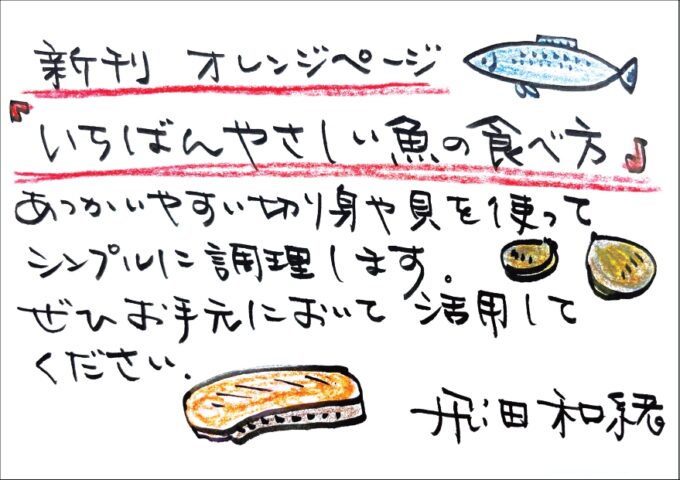 新刊 オレンジページ
『いちばんやさしい魚の食べ方』
あつかいやすい切り身や貝を使って
シンプルに調理します。
ぜひお手元において 活用して
ください.
飛田和緒